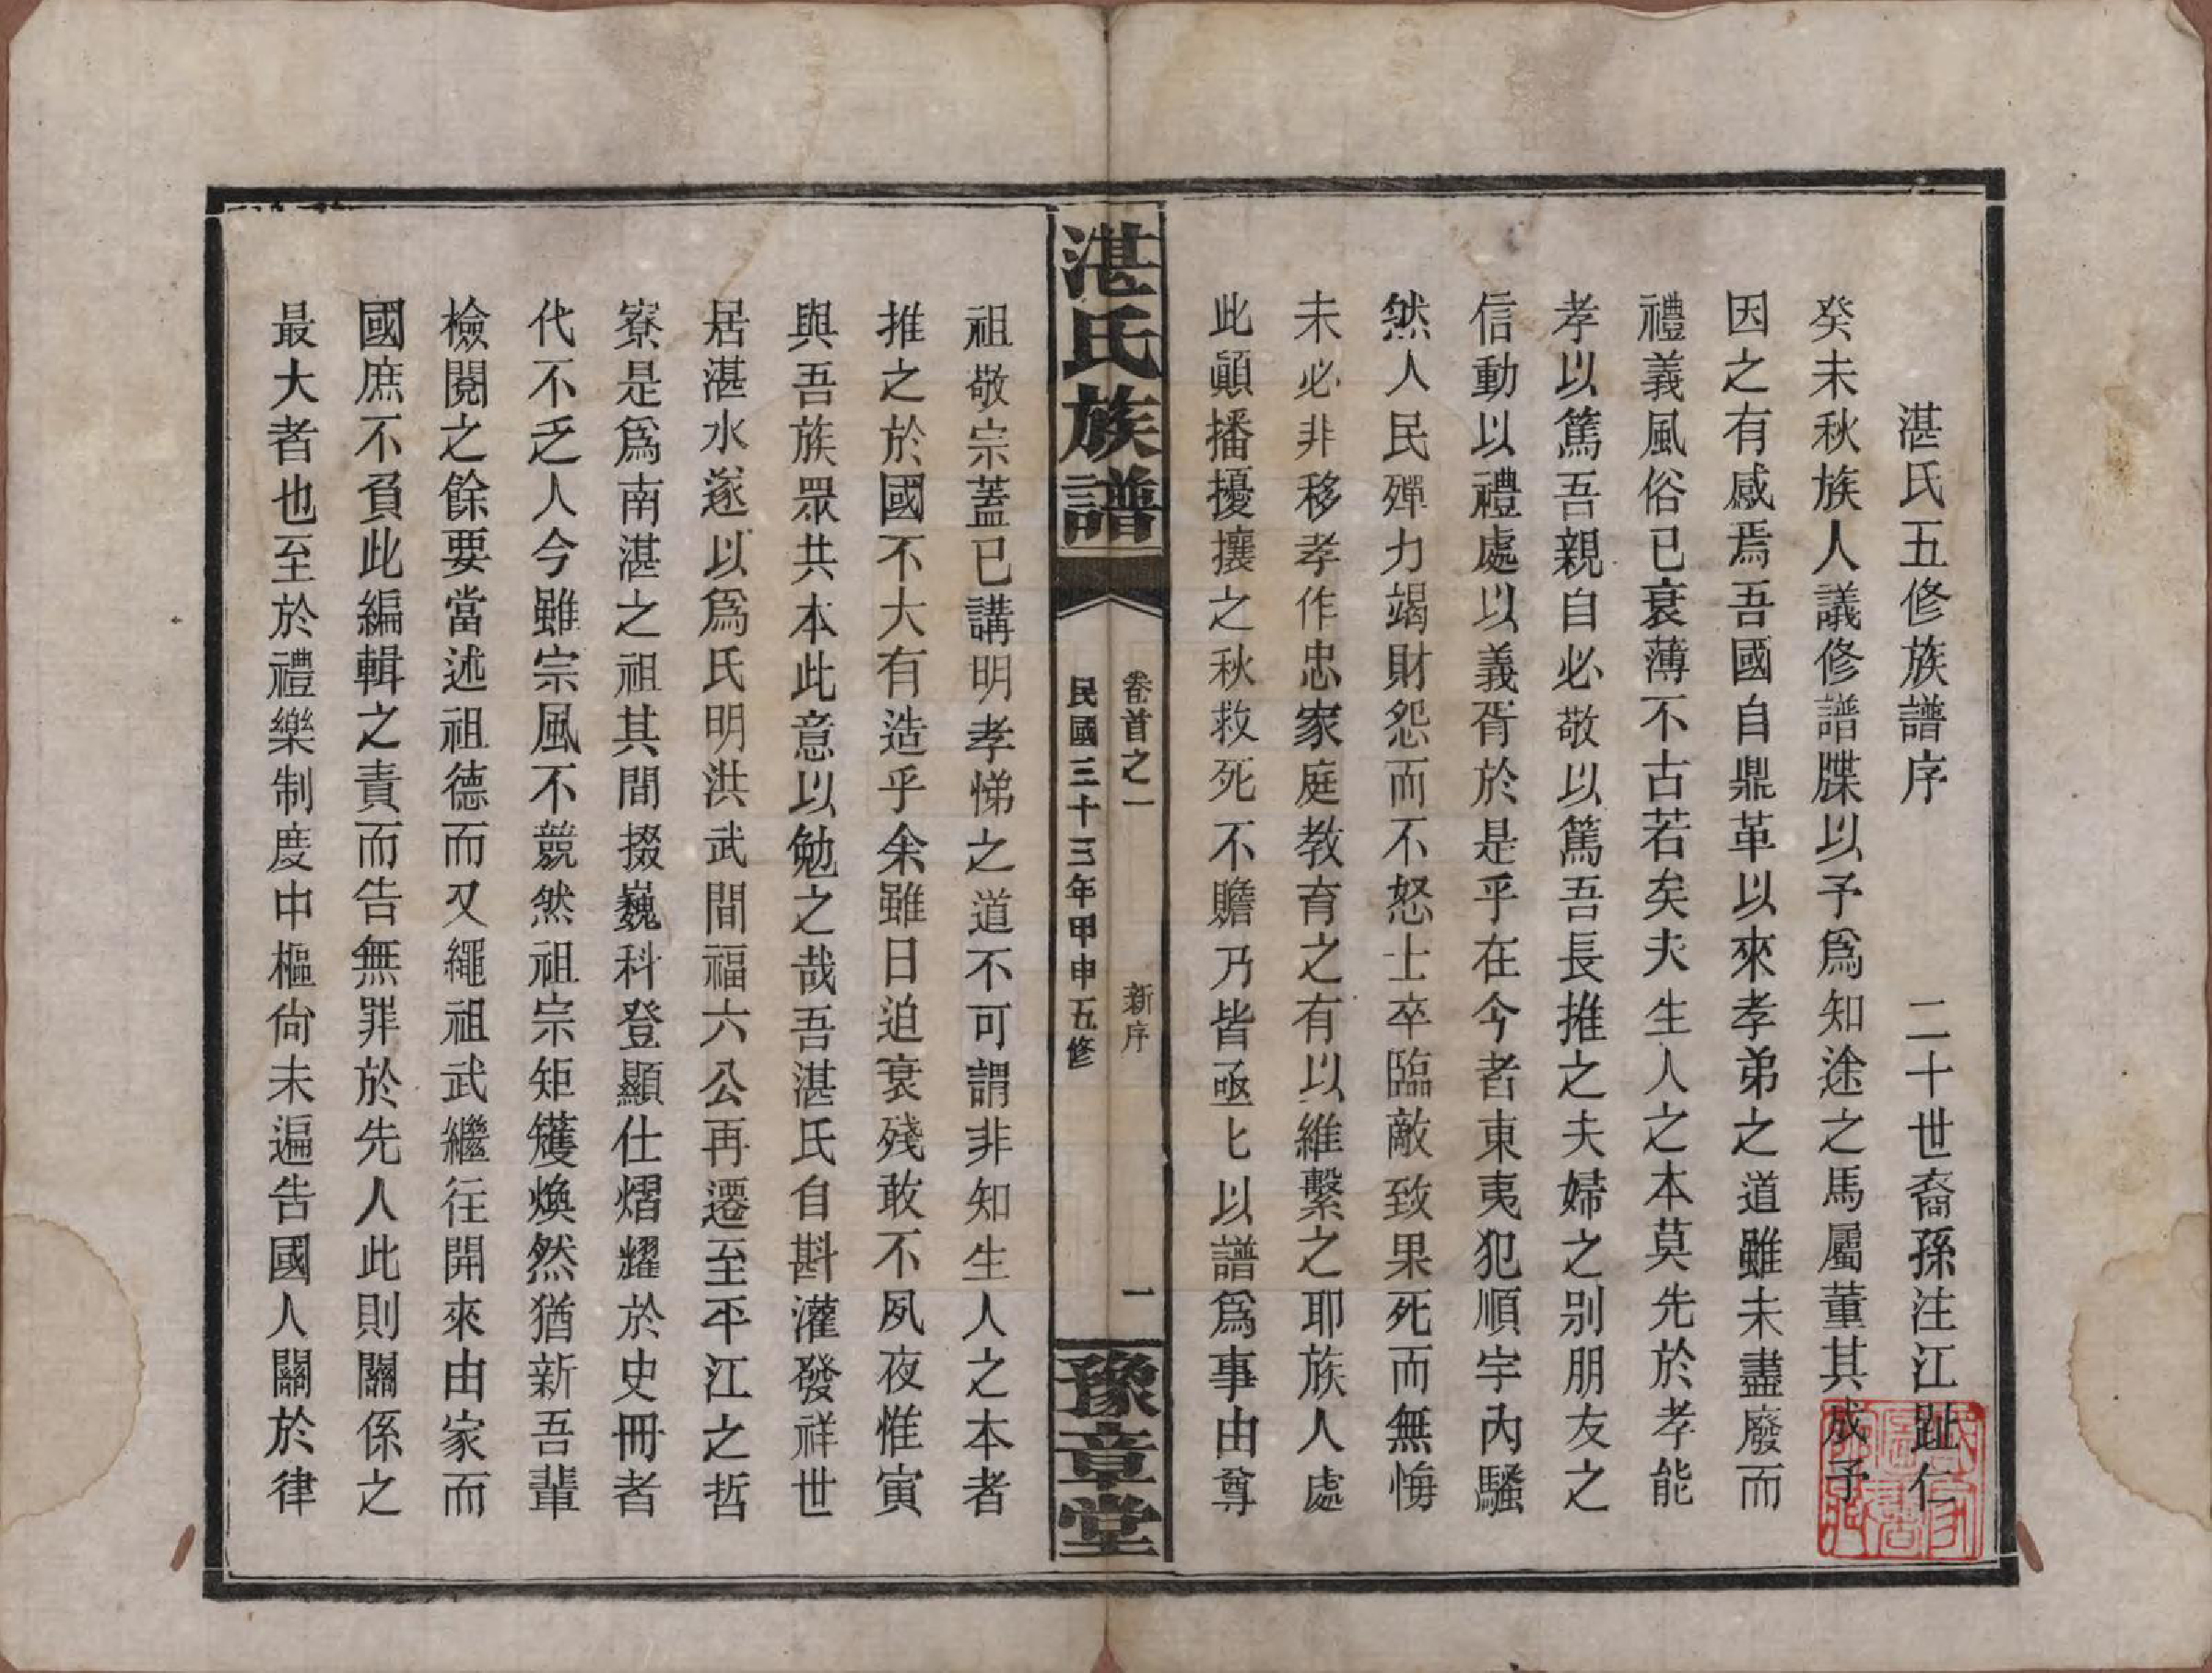 湛氏五修族譜序 二十世裔孫注江趾仁
癸未秋族人議修譜牒以予爲知途之馬屬董其成予
因之有感焉吾國自鼎革以來孝弟之道雖未盡廢而
禮義風俗已衰薄不古若矣夫生人之本莫先於孝能
孝以篤吾親自必敬以篤吾長推之夫婦之别朋友之
信動以禮處以義胥於是乎在今者東夷犯順宇內騷
然人民殫力竭財怨而不怒士卒臨敵致果死而無悔
未必非移孝作忠家庭教育之有以維繫之耶族人處
此顚播擾攘之秋救死不贍乃皆亟匕以譜爲事由尊
湛氏族譜
卷首之一 新序 一
民國三十三年甲申五修
豫章堂
祖敬宗蓋已講明孝悌之道不可謂非知生人之本者
推之於國不大有造乎余雖日迫衰殘敢不夙夜惟寅
與吾族眾共本此意以勉之哉吾湛氏自斟灌發祥世
居湛水遂以爲氏明洪武間福六公再遷至平江之哲
寮是爲南湛之祖其間掇巍科登顯仕熠耀於史冊者
代不乏人今雖宗風不競然祖宗矩矱煥然猶新吾輩
檢閱之餘要當述祖德而又繩祖武繼往開來由家而
國庶不負此編輯之責而告無罪於先人此則關係之
最大者也至於禮樂制度中樞尙未遍告國人關於律